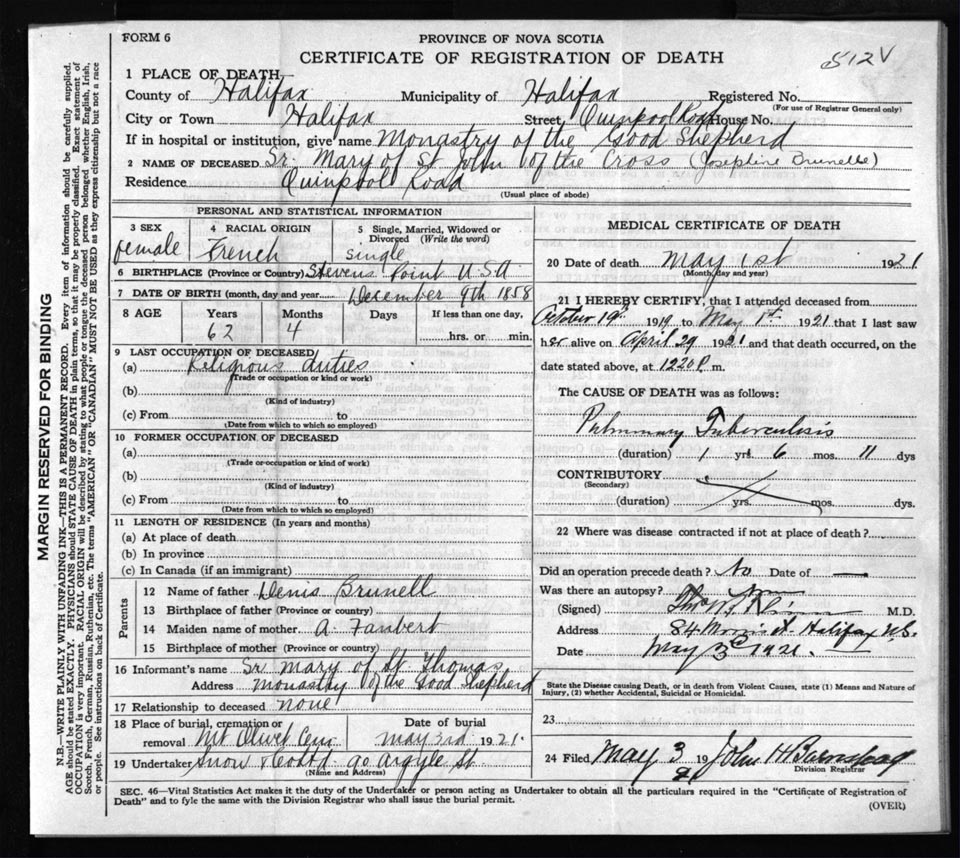 FORM 6
PROVINCE OF NOVA SCOTIA
CERTIFICATE OF REGISTRATION OF DEATH
S12V
1 PLACE OF DEATH
County of Halifax Municipality of Halifax Registered No.
(For use of Registrar General only)
City or Town Halifax Street Quinpool Road House No.
If in hospital or institution, give name Monastry of the Good Shepherd
2 NAME OF DECEASED Sr. Mary of St John of the Cross (Josephine Brunelle)
Residence Quinpool Road
(Usual place of abode)
PERSONAL AND STATISTICAL INFORMATION
3 SEX 4 RACIAL ORIGIN 5 Single, Married, Widowed or Divorced (Write the word)
female French single
6 BIRTHPLACE (Province or Country) Stevens Point U.S.A
7 DATE OF BIRTH (month, day and year) December 9th 1858
8 AGE Years Months Days If less than one day,
62 4 hrs. or min.
9 LAST OCCUPATION OF DECEASED
(a) Religious duties
(Trade or occupation or kind or work)
(b)
(Kind of industry)
(c) From to
(Date from which to which so employed)
10 FORMER OCCUPATION OF DECEASED
(a)
(Trade or occupation or kind of work)
(b)
(Kind of industry)
(c) From to
(Date from which to which so employed)
11 LENGTH OF RESIDENCE (In years and months)
(a) At place of death
(b) In province
(c) In Canada (if an immigrant)
Parents
12 Name of father Denis Brunell
13 Birthplace of father (Province or country)
14 Maiden name of mother A. Faubert
15 Birthplace of mother (Province or country)
16 Informant's name Sr Mary of St. Thomas
Address Monastry of the Good Shepherd
17 Relationship to deceased none
18 Place of burial, cremation or removal Mt Olivet Cem Date of burial May 3rd 1921.
19 Undertaker Snow & Co Ltd 90 Argyle St
(Name and Address)
MEDICAL CERTIFICATE OF DEATH
20 Date of death May 1st 1921
(Month, day and year)
21 I HEREBY CERTIFY, that I attended deceased from
October 19th 1919 to May 1st 1921 that I last saw
her alive on April 29 1921 and that death occurred, on the
date stated above, at 1220 P m.
The CAUSE OF DEATH was as follows:
Pulmonary Tuberculosis
(duration) 1 yrs. 6 mos. 11 dys
CONTRIBUTORY
(Secondary)
(duration) yrs. mos. dys.
22 Where was disease contracted if not at place of death?
Did an operation precede death? No Date of —
Was there an autopsy? No
(Signed) M.D.
Address 84 Morris St. Halifax N.S.
Date May 3rd 1921.
State the Disease causing Death, or in death from Violent Causes, state (1) Means and Nature of
Injury, (2) whether Accidental, Suicidal or Homicidal.
23
24 Filed May 3 19 21 John H Barnstead
Division Registrar
SEC. 46—Vital Statistics Act makes it the duty of the Undertaker or person acting as Undertaker to obtain all the particulars required in the "Certificate of Registration of
Death" and to fyle the same with the Division Registrar who shall issue the burial permit.
(OVER)
MARGIN RESERVED FOR BINDING
N.B.—WRITE PLAINLY WITH UNFADING INK—THIS IS A PERMANENT RECORD. Every item of information should be carefully supplied.
AGE should be stated EXACTLY. PHYSICIANS should STATE CAUSE OF DEATH in plain terms, so that it may be properly classified. Exact statement of
OCCUPATION is very important. RACIAL ORIGIN will be described by stating to what people or tongue the deceased person belonged whether English, Irish,
Scotch, French, German, Russian, Ruthenian, etc. The terms "AMERICAN" OR "CANADIAN" MUST NOT BE USED as they express citizenship but not a race
or people. See instructions on back of Certificate.